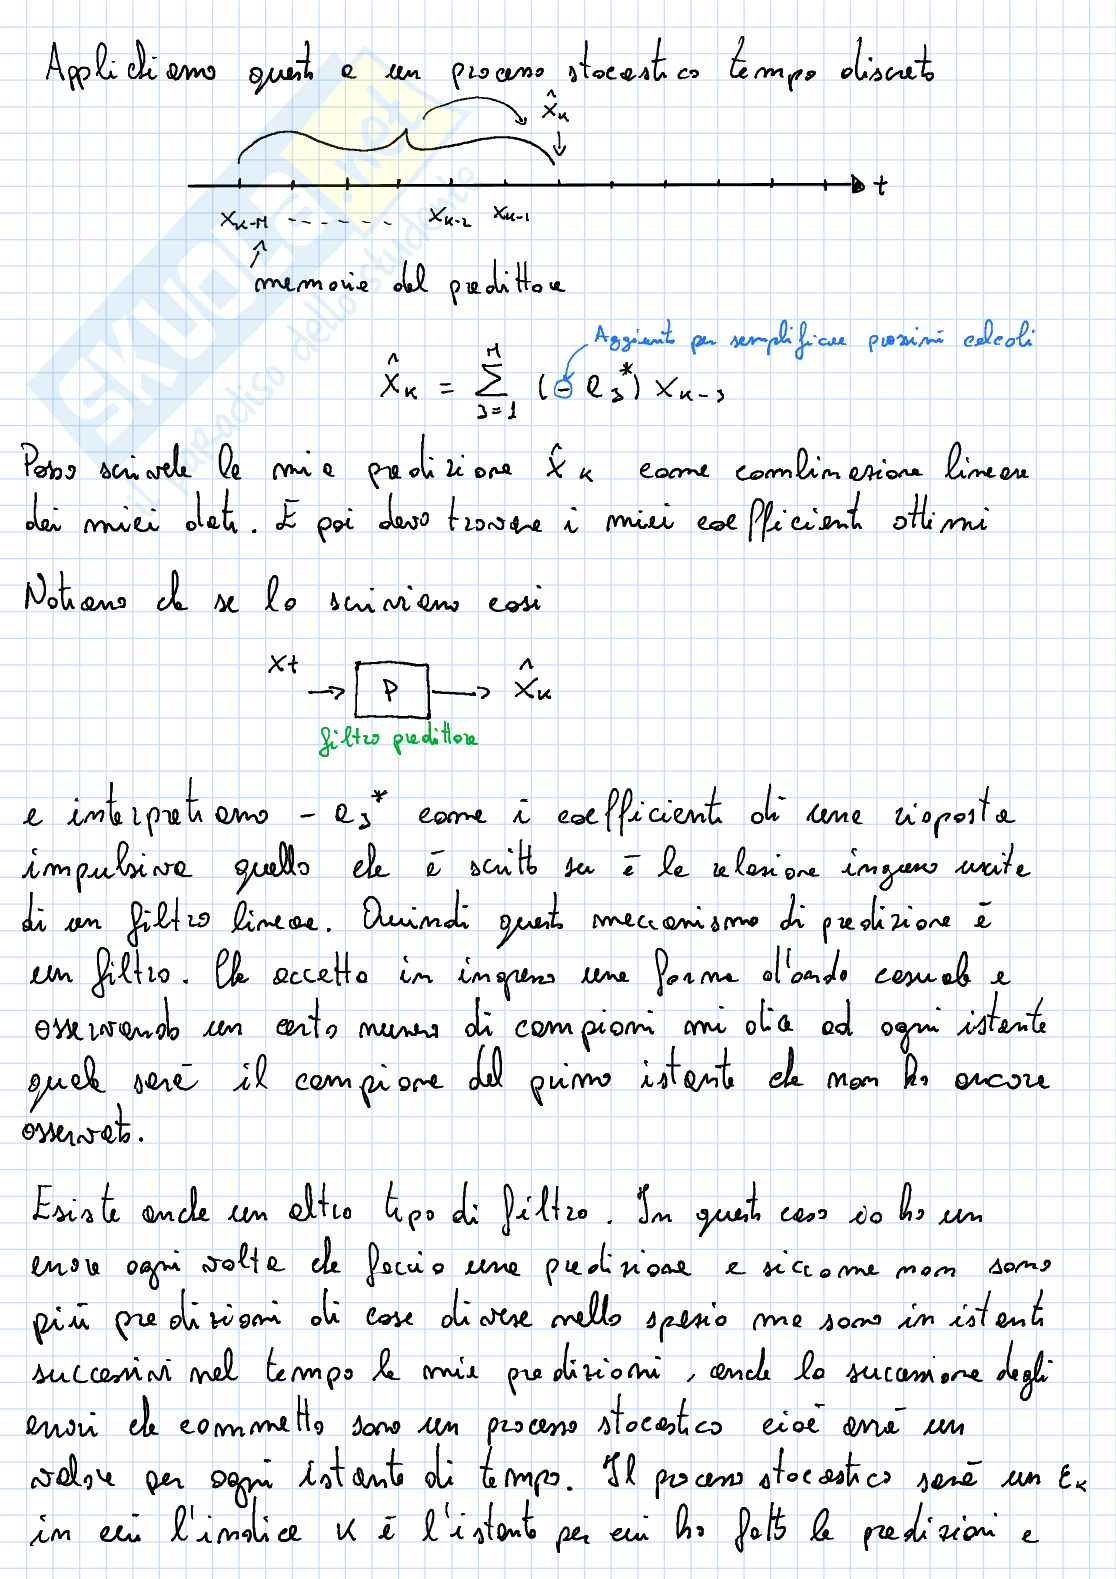 Applichiamo questo a un processo stocastico tempo discreto
x̂ₖ
t
xₖ₋M - - - - - - xₖ₋₂ xₖ₋₁
memoria del predittore
Aggiunto per semplificare prossimi calcoli
x̂ₖ = Σ_{J=1}^{M} (- aⱼ*) xₖ₋ⱼ
Posso scrivele la mia predizione x̂ₖ come combinazione lineare
dei miei dati. E poi devo trovare i miei coefficienti ottimi
Notiamo che se lo scriviamo così
xt P x̂ₖ
filtro predittore
e interpretiamo - aⱼ* come i coefficienti di una risposta
impulsiva quello che è scritto su è la relazione ingresso uscita
di un filtro lineare. Quindi questo meccanismo di predizione è
un filtro. Che accetta in ingresso una forma d'onda casuale e
osservando un certo numero di campioni mi dice ad ogni istante
quale sarà il campione del primo istante che non ho ancora
osservato.
Esiste anche un altro tipo di filtro. In questo caso io ho un
errore ogni volta che faccio una predizione e siccome non sono
più predizioni di cose diverse nello spazio ma sono in istanti
successivi nel tempo le mie predizioni, anche la successione degli
errori che commetto sono un processo stocastico cioè avrà un
valore per ogni istante di tempo. Il processo stocastico sarà un εₖ
in cui l'indice k è l'istante per cui ho fatto le predizioni e
SKUOLA.net
il paradiso dello studente